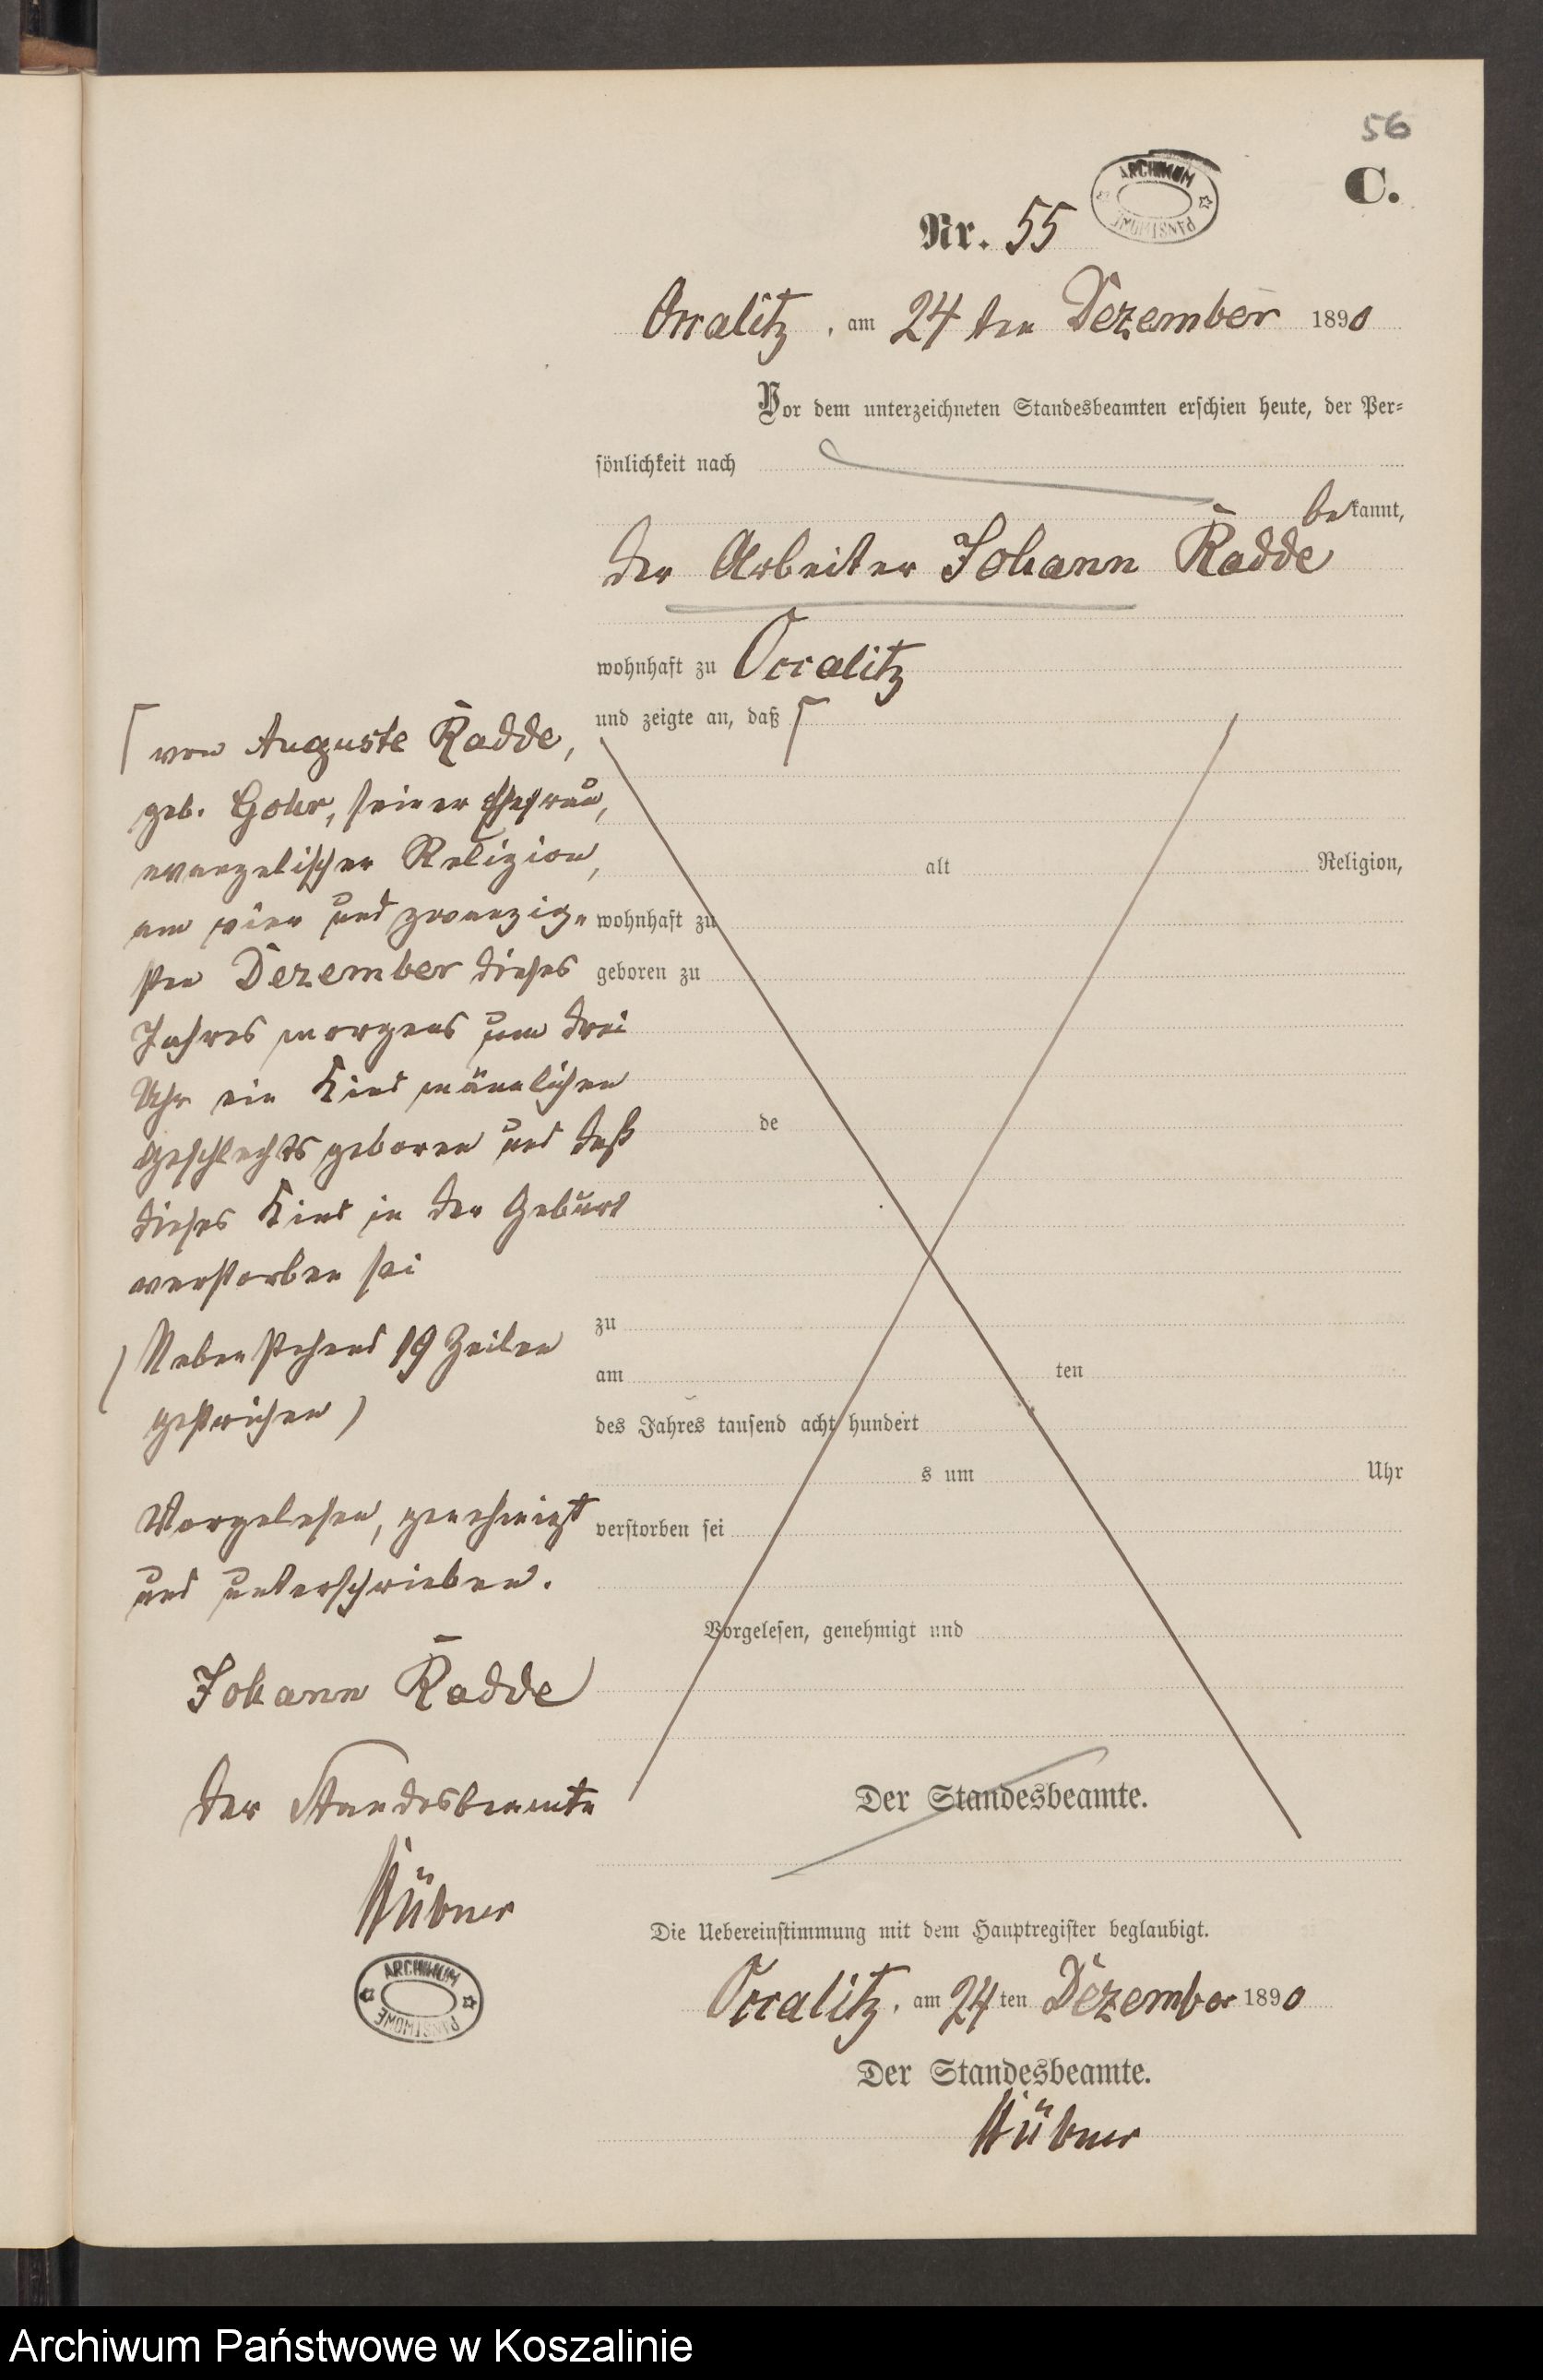 56
C.
ARCHIWUM PAŃSTWOWE
Nr. 55
Occalitz, am 24 ten Dezember 1890
Vor dem unterzeichneten Standesbeamten erschien heute, der Per-
sönlichkeit nach
bekannt,
der Arbeiter Johann Radde
wohnhaft zu Occalitz
und zeigte an, daß ⌈
⌈ von Auguste Radde,
geb. Gohr, seiner Ehefrau,
evangelischer Religion,
am vier und zwanzig-
sten Dezember dieses
Jahres morgens um drei
Uhr ein Kind männlichen
Geschlechts geboren und daß
dieses Kind in der Geburt
verstorben sei
(Nebenstehend 19 Zeilen
gestrichen)
Vorgelesen, genehmigt
und unterschrieben.
Johann Radde
Der Standesbeamte
Hübner
ARCHIWUM PAŃSTWOWE
alt Religion,
wohnhaft zu
geboren zu
de
zu
am ten
des Jahres tausend acht hundert
s um Uhr
verstorben sei
Vorgelesen, genehmigt und
Der Standesbeamte.
Die Uebereinstimmung mit dem Hauptregister beglaubigt.
Occalitz, am 24 ten Dezember 1890
Der Standesbeamte.
Hübner
Archiwum Państwowe w Koszalinie